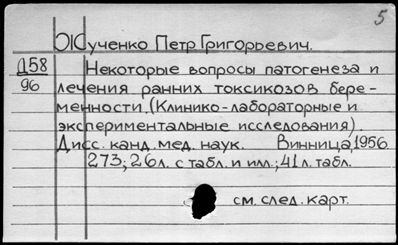 5
Жученко Петр Григорьевич.
Д58
96
Некоторые вопросы патогенеза и
лечения ранних токсикозов бере-
менности. (Клинико-лабораторные и
экспериментальные исследования)
Дисс. канд. мед. наук. Винница, 1956
273; 26л. с табл. и илл.; 41л. табл.
см. след. карт.